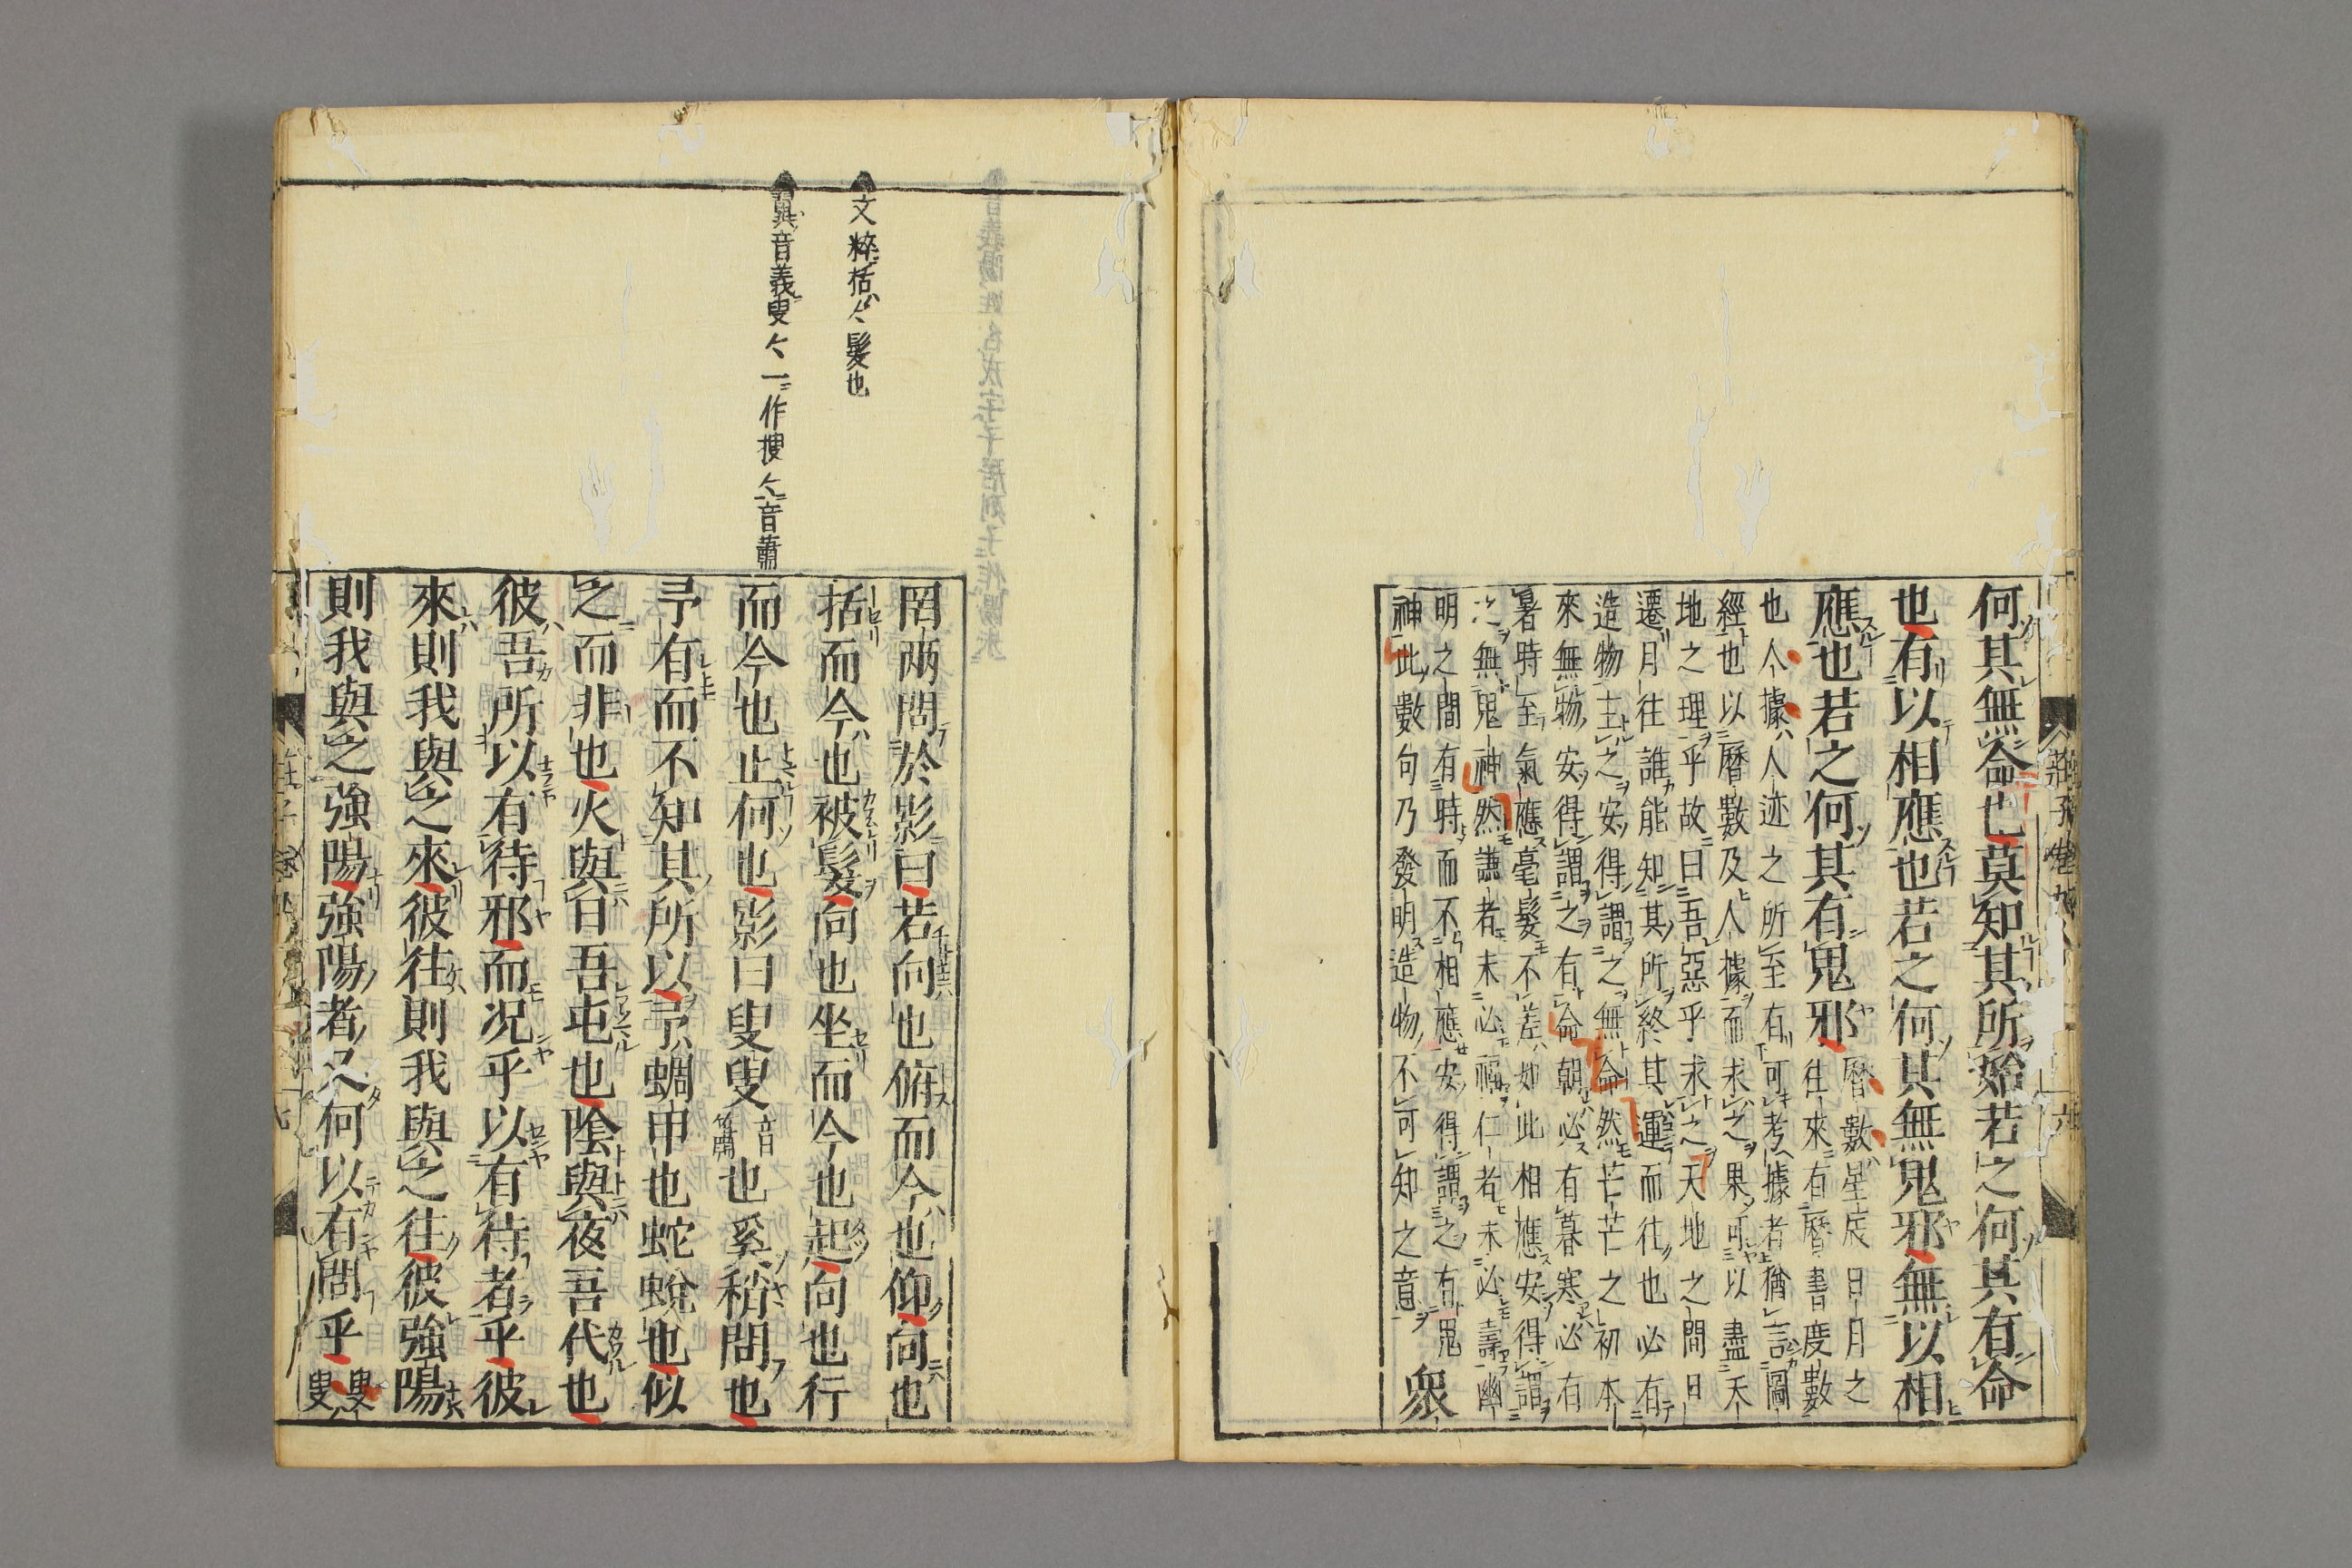 何其無命也莫知其所始若之何其有命
也有以相應也若之何其無鬼邪無以相
應也若之何其有鬼邪曆數星辰日月之
往來有曆書度數
也人據人迹之所至有可考據者猶言圖
經也以曆數及人據而求之果可以盡天
地之理乎故曰吾惡乎求之天地之間日
遷月往誰能知其所終其運而往也必有
造物主之安得謂之無命然芒芒之初本
來無物安得謂之有命朝必有暮寒必有
暑時至氣應毫髮不差如此相應安得謂
之無鬼神然謙者未必福仁者未必壽幽
明之間有時而不相應安得謂之有鬼
神此數句乃發明造物不可知之意衆
罔兩問於影曰若向也俯而今也仰向也
括而今也被髮向也坐而今也起向也行
而今也止何也影曰叟叟音簫也奚稍問也
予有而不知其所以予蜩甲也蛇蛻也似
之而非也火與日吾屯也陰與夜吾代也
彼吾所以有待邪而况乎以有待者乎彼
來則我與之來彼往則我與之往彼強陽
則我與之強陽強陽者又何以有問乎叟叟
文粹括々髮也
翼音義叟々一作搜々音蕭